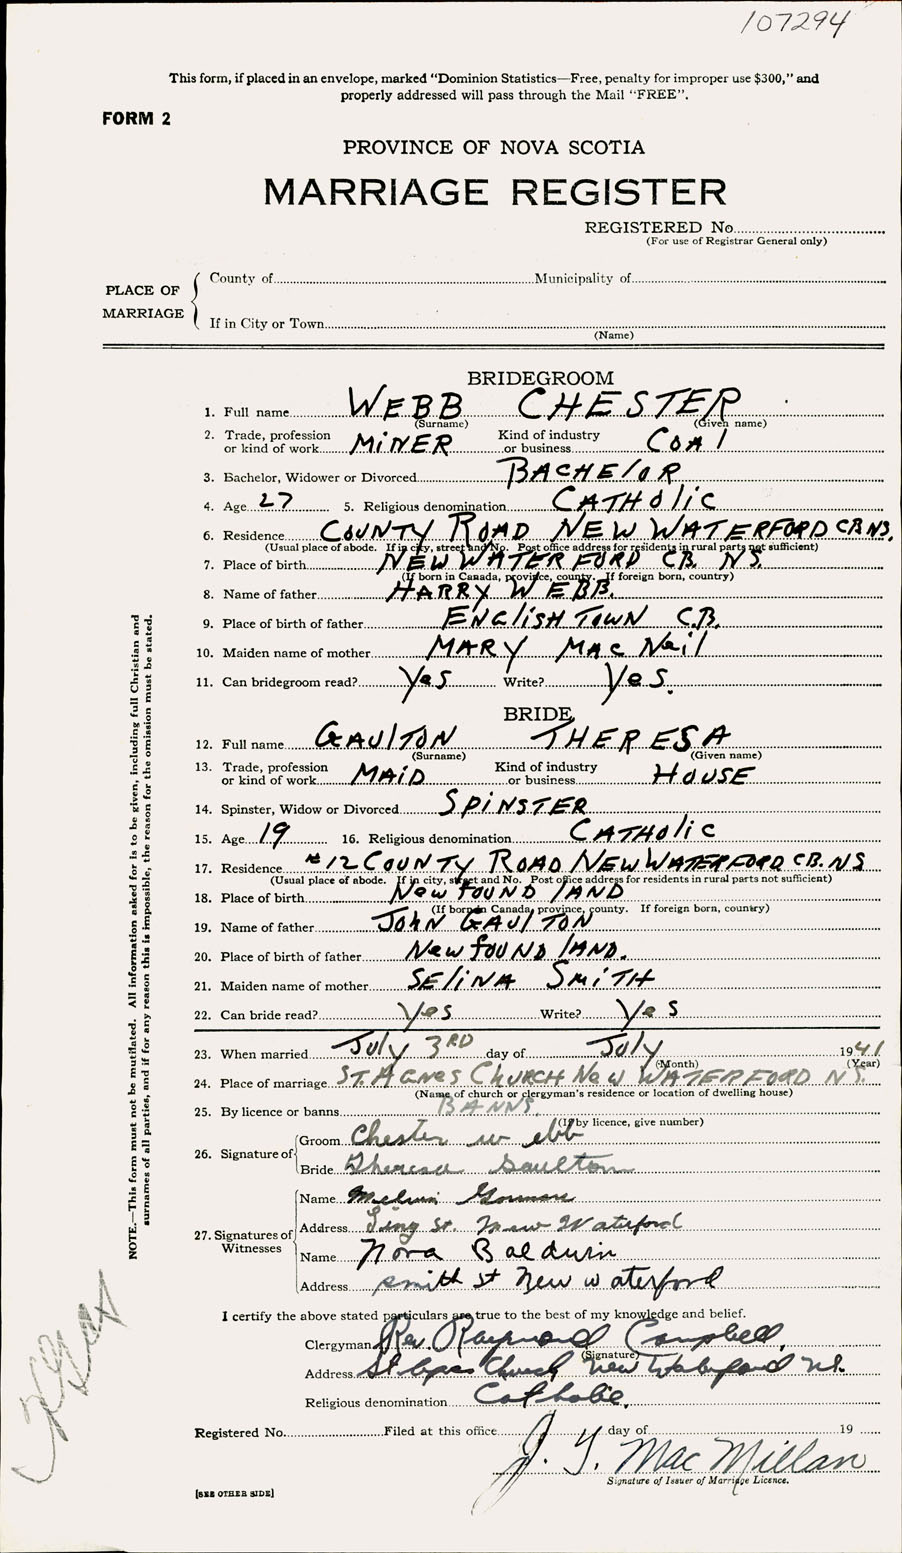 107294
This form, if placed in an envelope, marked "Dominion Statistics—Free, penalty for improper use $300," and
properly addressed will pass through the Mail "FREE".
FORM 2
PROVINCE OF NOVA SCOTIA
MARRIAGE REGISTER
REGISTERED No.
(For use of Registrar General only)
PLACE OF MARRIAGE
County of Municipality of
If in City or Town
(Name)
BRIDEGROOM
1. Full name WEBB CHESTER
(Surname) (Given name)
2. Trade, profession or kind of work MINER Kind of industry or business COAl
3. Bachelor, Widower or Divorced BACHElOR
4. Age 27 5. Religious denomination CATHOlic
6. Residence COUNTY ROAD NEW WATERFORD CB NS.
(Usual place of abode. If in city, street and No. Post office address for residents in rural parts not sufficient)
7. Place of birth NEW WATERFORD CB. NS.
(If born in Canada, province, county. If foreign born, country)
8. Name of father HARRY WEBB.
9. Place of birth of father ENGlisH TOWN C.B.
10. Maiden name of mother MARY MAC Neil
11. Can bridegroom read? Yes Write? Yes.
BRIDE
12. Full name GAUlTON THERESA
(Surname) (Given name)
13. Trade, profession or kind of work MAiD Kind of industry or business HOUSE
14. Spinster, Widow or Divorced SPiNSTER
15. Age 19 16. Religious denomination CATHOlic
17. Residence #12 COUNTY ROAD NEW WATERFORD CB. NS
(Usual place of abode. If in city, street and No. Post office address for residents in rural parts not sufficient)
18. Place of birth NewfOUND lAND
(If born in Canada, province, county. If foreign born, country)
19. Name of father JOHN GAUlTON
20. Place of birth of father NewfOUND lAND.
21. Maiden name of mother SEliNA SMiTH
22. Can bride read? Yes Write? Yes
23. When married July 3RD day of July 1941
(Month) (Year)
24. Place of marriage ST. AGNES CHURCH New WATERFORD NS.
(Name of church or clergyman's residence or location of dwelling house)
25. By licence or banns BANNS.
(If by licence, give number)
26. Signature of Groom Chester webb
Bride Theresa Gaulton
27. Signatures of Witnesses Name Melvin
Address King St. New Waterford
Name Nora Baldwin
Address smith st New waterford
I certify the above stated particulars are true to the best of my knowledge and belief.
Clergyman Rev. Raymond Campbell,
(Signature)
Address St Church New Waterford N.S.
Religious denomination Catholic.
Registered No. Filed at this office day of 19
J. Y. MacMillan
Signature of Issuer of Marriage Licence.
[SEE OTHER SIDE]
NOTE.—This form must not be mutilated. All information asked for is to be given, including full Christian and
surnames of all parties, and if for any reason this is impossible, the reason for the omission must be stated.